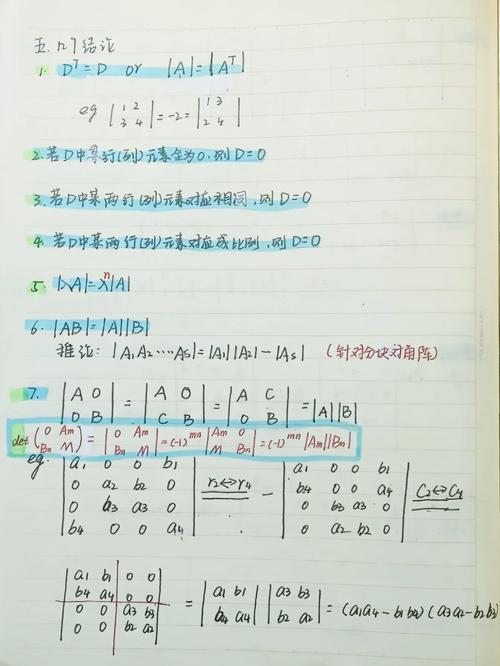 五.几个结论
1. Dᵀ=D or |A|=|Aᵀ|
eg |1 2; 3 4|=-2=|1 3; 2 4|
2.若D中某行(列)元素全为0,则D=0
3.若D中某两行(列)元素对应相同,则D=0
4.若D中某两行(列)元素对应成比例,则D=0
5. |λA|=λⁿ|A|
6. |AB|=|A||B|
推论: |A₁A₂⋯As|=|A₁||A₂|-|As| (针对分块对角阵)
7. |A 0; 0 B|=|A 0; C B|=|A C; 0 B|=|A||B|
det(0 Am; Bn M)=|0 Am; Bn M|=(-1)^mn|Am 0; M Bn|=(-1)^mn|Am||Bn|
eg. |a₁ 0 0 b₁; 0 a₂ b₂ 0; 0 b₃ a₃ 0; b₄ 0 0 a₄| r₂↔r₄ -|a₁ 0 0 b₁; b₄ 0 0 a₄; 0 b₃ a₃ 0; 0 a₂ b₂ 0| C₂↔C₄
|a₁ b₁ 0 0; b₄ a₄ 0 0; 0 0 a₃ b₃; 0 0 b₂ a₂|=|a₁ b₁; b₄ a₄||a₃ b₃; b₂ a₂|=(a₁a₄-b₁b₄)(a₃a₂-b₂b₃)